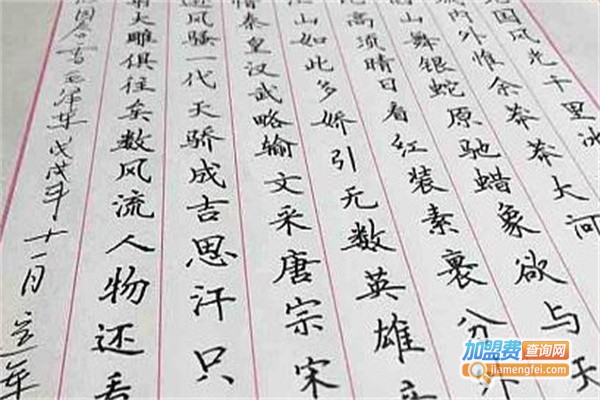 国风光千里冰
城内外惟余莽莽大河
山舞银蛇原驰蜡象欲与天
高须晴日看红装素裹分外
江山如此多娇引无数英雄
惜秦皇汉武略输文采唐宗宋
风骚一代天骄成吉思汗只
大雕俱往矣数风流人物还看
园春雪毛泽东戊戌年十一月
加盟费查询网
jiamengfei.com